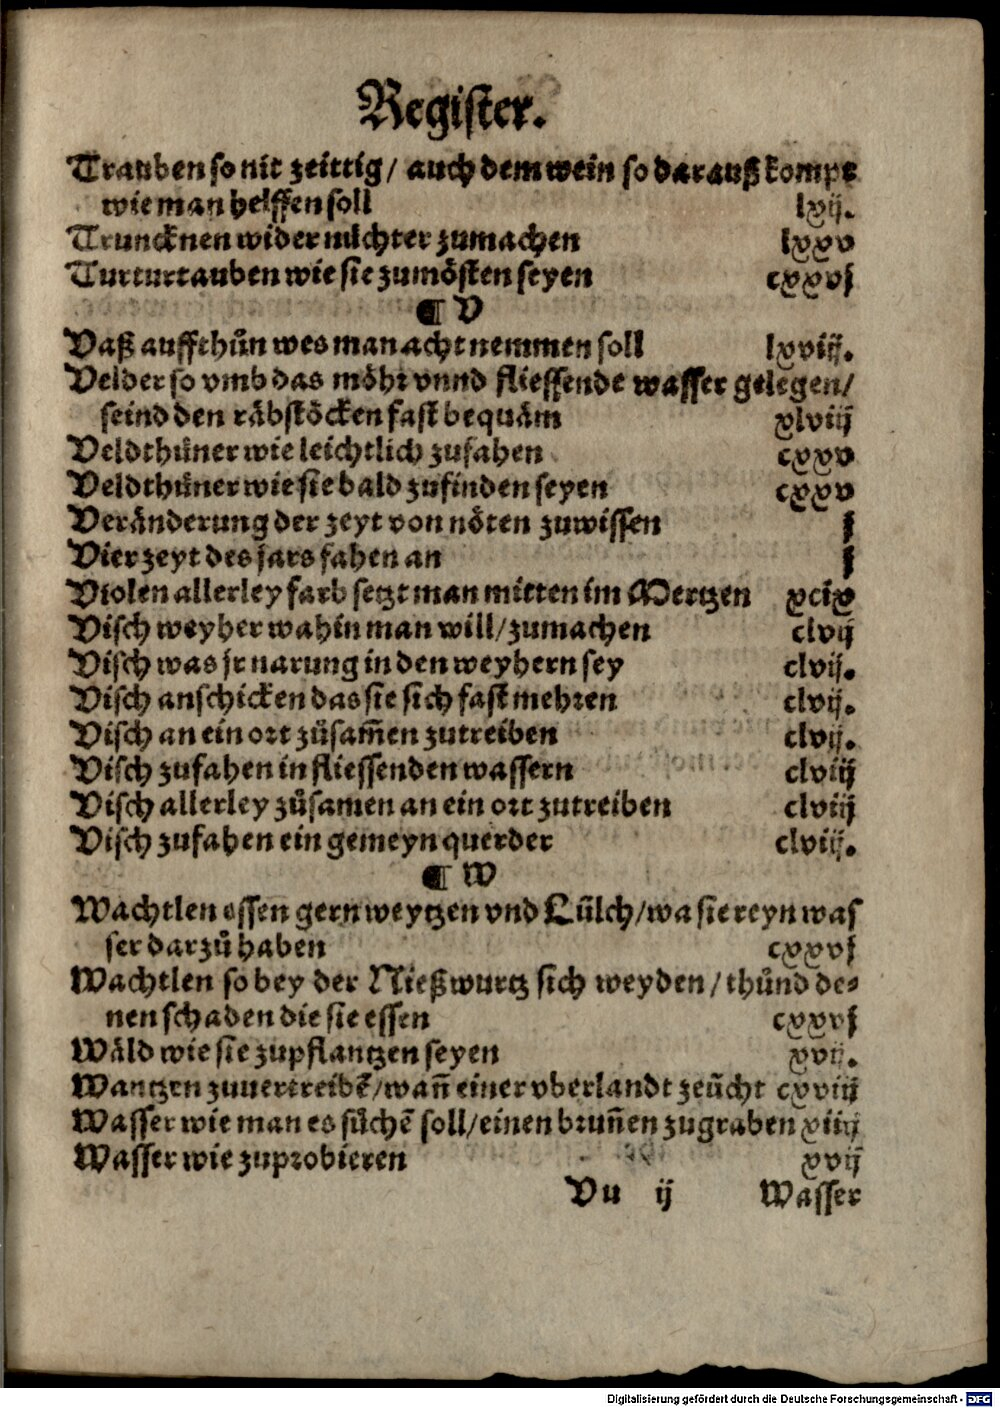 Register.
Trauben so nit zeittig / auch dem wein so darauß kompt
wie man helffen soll lxij.
Truncknen wider nüchter zumachen lxxv
Turturtauben wie sie zumösten seyen cxxvj
¶ V
Vaß auffthůn wes man acht nemmen soll lxviij.
Velder so vmb das möhr vnnd fliessende wasser gelegen /
seind den räbstöcken fast bequäm xlviij
Veldthüner wie leichtlich zufahen cxxv
Veldthüner wie sie bald zufinden seyen cxxv
Veränderung der zeyt von nöten zuwissen j
Vier zeyt des jars fahen an j
Violen allerley farb setzt man mitten im Mertzen xcix
Visch weyher wahin man will / zumachen clvij
Visch was jr narung in den weyhern sey clvij.
Visch anschicken das sie sich fast mehren clvij.
Visch an ein ort zůsam̄en zutreiben clvij.
Visch zufahen in fliessenden wassern clviij
Visch allerley zůsamen an ein ort zutreiben clviij
Visch zufahen ein gemeyn querder clviij.
¶ W
Wachtlen essen gern weytzen vnd Lülch / wa sie reyn was
ser darzů haben cxxvj
Wachtlen so bey der Nießwurtz sich weyden / thůnd de⸗
nen schaden die sie essen cxxvj
Wäld wie sie zupflantzen seyen xvij.
Wantzen zuuertreibē / wañ einer vberlandt zeücht cxviij
Wasser wie man es sůchē soll / einen brunñen zugraben xiiij
Wasser wie zuprobieren xvij
Vu ij Wasser
Digitalisierung gefördert durch die Deutsche Forschungsgemeinschaft - DFG